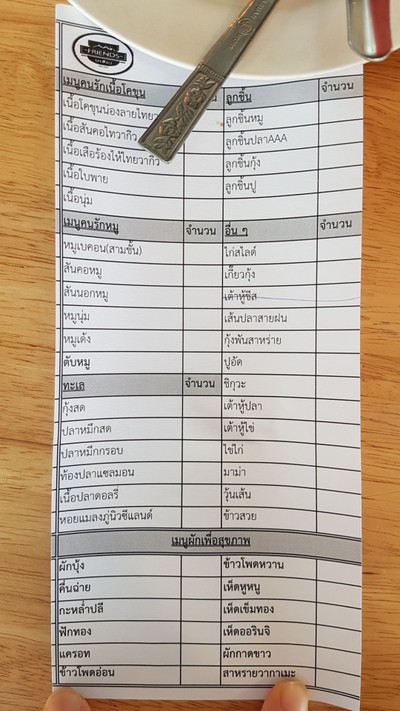 FRIENDS
เมนูคนรักเนื้อโคขุน
ลูกชิ้น จำนวน
เนื้อโคขุนน่องลาย ลูกชิ้นหมู
เนื้อสันคอไทวากิว ลูกชิ้นปลาAAA
เนื้อเสือร้องไห้ไทยวากิว ลูกชิ้นกุ้ง
เนื้อใบพาย ลูกชิ้นปู
เนื้อนุ่ม
เมนูคนรักหมู จำนวน อื่น ๆ จำนวน
หมูเบคอน(สามชั้น) ไก่สไลด์
สันคอหมู เกี๊ยวกุ้ง
สันนอกหมู เต้าหู้ชีส
หมูนุ่ม เส้นปลาสายฝน
หมูเด้ง กุ้งพันสาหร่าย
ตับหมู ปูอัด
ทะเล จำนวน ชิกุวะ
กุ้งสด เต้าหู้ปลา
ปลาหมึกสด เต้าหู้ไข่
ปลาหมึกกรอบ ไข่ไก่
ท้องปลาแซลมอน มาม่า
เนื้อปลาดอลรี่ วุ้นเส้น
หอยแมลงภู่นิวซีแลนด์ ข้าวสวย
เมนูผักเพื่อสุขภาพ
ผักบุ้ง ข้าวโพดหวาน
คื่นฉ่าย เห็ดหูหนู
กะหล่ำปลี เห็ดเข็มทอง
ฟักทอง เห็ดออรินจิ
แครอท ผักกาดขาว
ข้าวโพดอ่อน สาหรายวากาเมะ